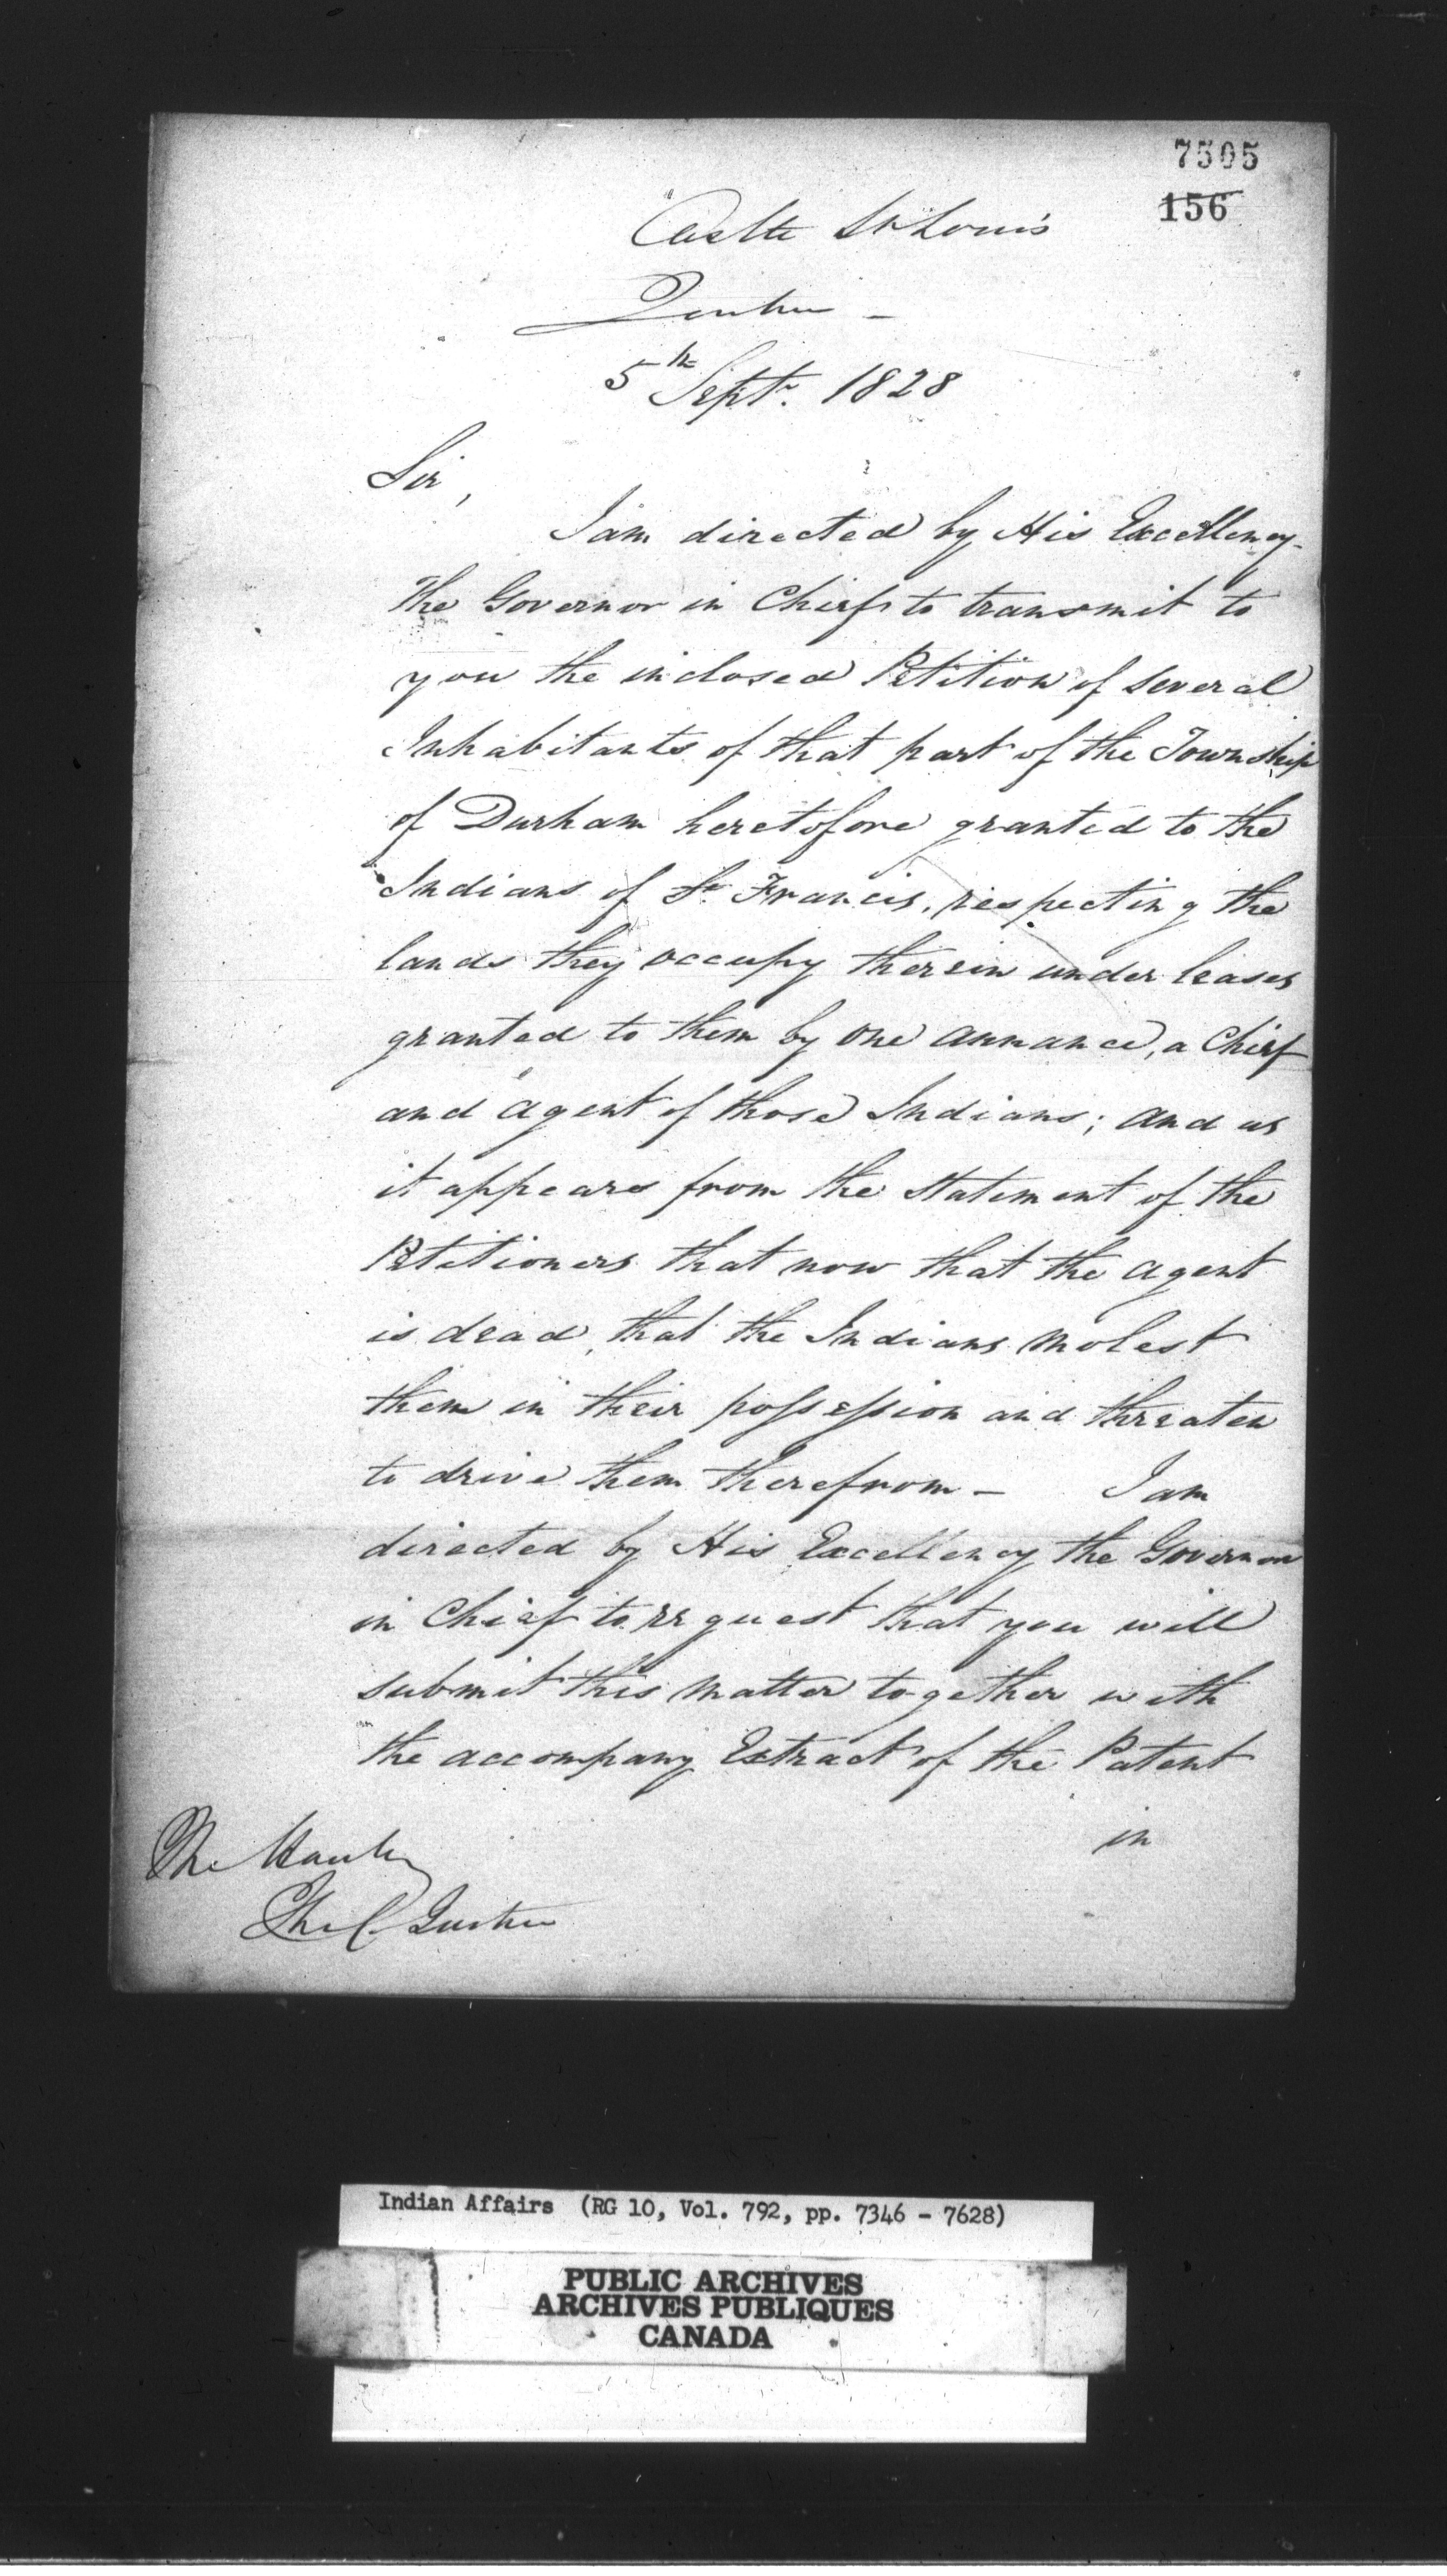 7505
156
Castle St Louis
Quebec -
5th Septr. 1828
Sir,
I am directed by His Excellency
the Governor in Chief to transmit to
you the inclosed Petition of several
Inhabitants of that part of the Township
of Durham heretofore granted to the
Indians of St. Francis, respecting the
lands they occupy therein under leases
granted to them by one Annance, a Chief
and Agent of those Indians; and as
it appears from the Statement of the
Petitioners that now that the Agent
is dead, that the Indians molest
them in their possession and threaten
to drive them therefrom - I am
directed by His Excellency the Governor
in Chief to request that you will
submit this matter together with
the accompany Extract of the Patent
in
The Honble
The C. Justice
Indian Affairs (RG 10, Vol. 792, pp. 7346 - 7628)
PUBLIC ARCHIVES
ARCHIVES PUBLIQUES
CANADA